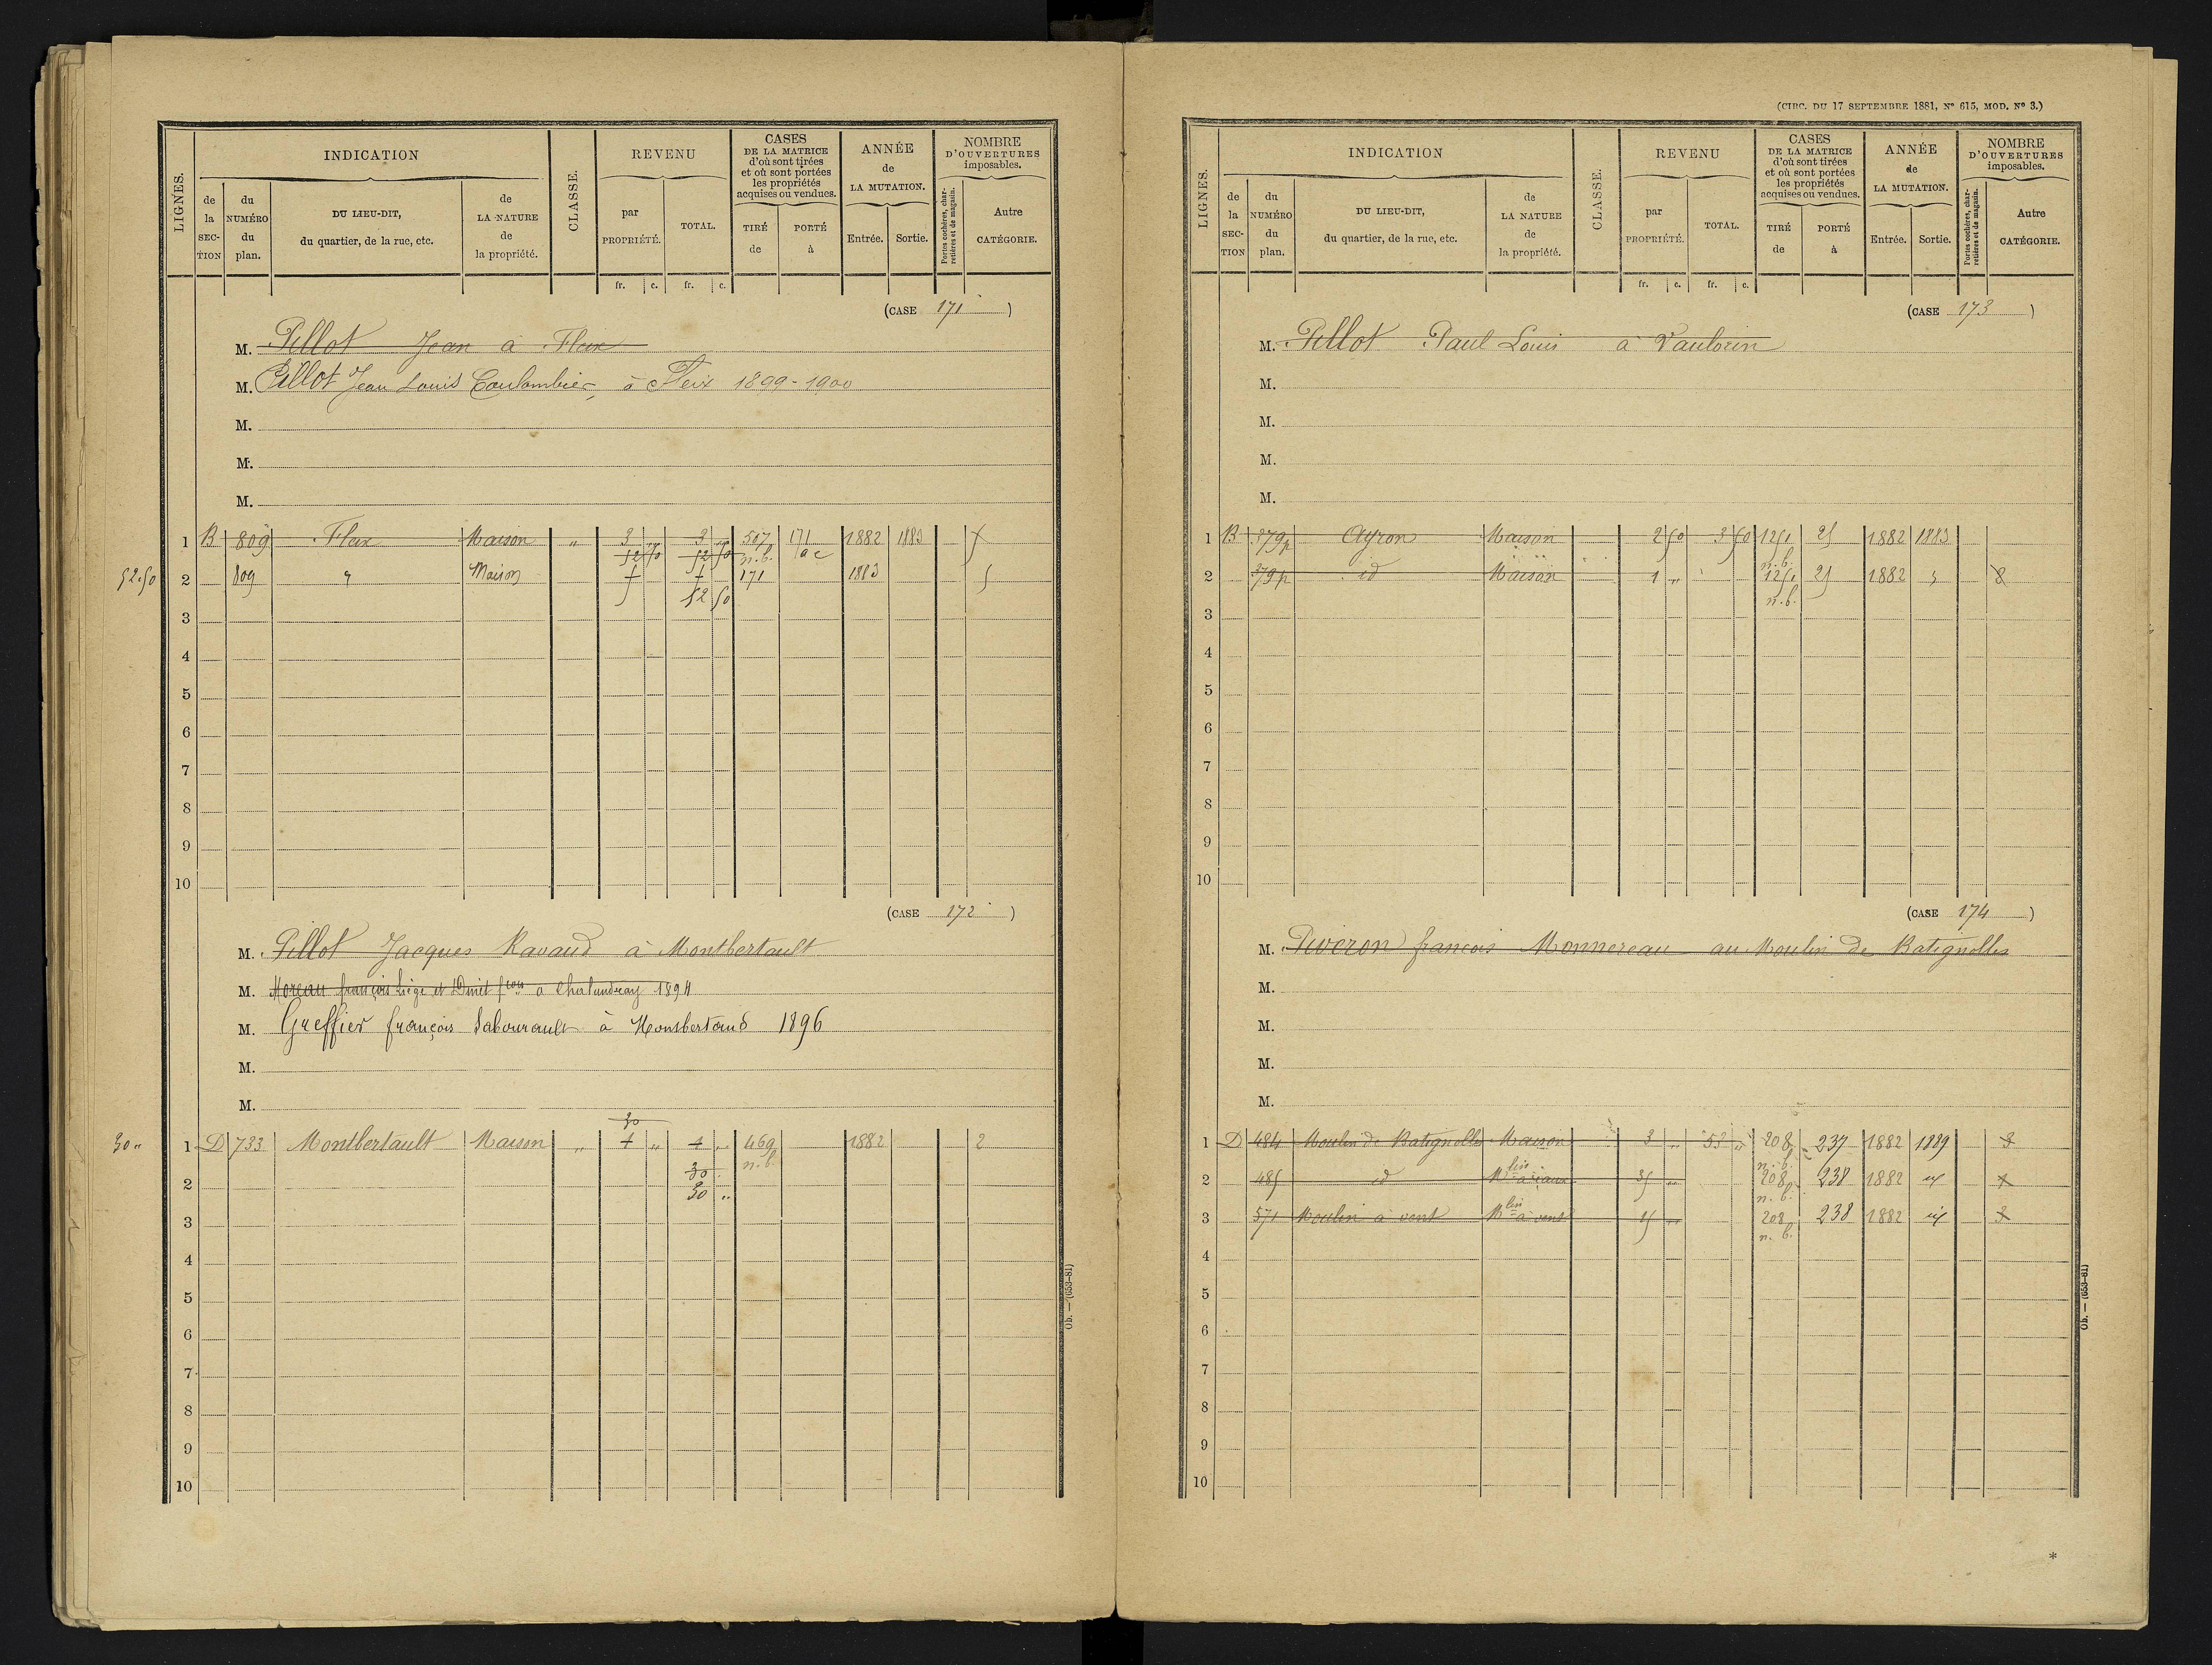 LIGNES.
INDICATION
de la SECTION
du NUMÉRO du plan.
DU LIEU-DIT, du quartier, de la rue, etc.
de LA NATURE de la propriété.
CLASSE.
REVENU
par PROPRIÉTÉ.
TOTAL.
CASES DE LA MATRICE d'où sont tirées et où sont portées les propriétés acquises ou vendues.
TIRÉ de
PORTÉ à
ANNÉE de LA MUTATION.
Entrée. Sortie.
NOMBRE D'OUVERTURES imposables.
Portes cochères, charretières et de magasin.
Autre CATÉGORIE.
fr. c. fr. c.
(CASE 171)
M. Pillot Jean à Fleix
M. Pillot Jean Louis Coulombier, à Fleix 1899-1900
M.
M.
M.
1 B 809 Fleix Maison " 3 " 3 " 507 171 1882 1883
52 50 52 50 n.b. ac
52.50 2 809 " Maison 171 1883 5
52 50
3
4
5
6
7
8
9
10
(CASE 172)
M. Pillot Jacques Ravaud à Montbertault
M. Moreau françois Liège et Dinet fçois a Chalandray 1894
M. Greffier françois Sabourault à Montbertaud 1896
M.
M.
30
30 " 1 D 733 Montbertault Maison " 4 " 4 " 469 1882 2
30 n.b.
2 30 "
3
4
5
6
7
8
9
10
Ob. — (653-81)
(CIRC. DU 17 SEPTEMBRE 1881, Nº 615, MOD. Nº 3.)
LIGNES.
INDICATION
de la SECTION
du NUMÉRO du plan.
DU LIEU-DIT, du quartier, de la rue, etc.
de LA NATURE de la propriété.
CLASSE.
REVENU
par PROPRIÉTÉ.
TOTAL.
CASES DE LA MATRICE d'où sont tirées et où sont portées les propriétés acquises ou vendues.
TIRÉ de
PORTÉ à
ANNÉE de LA MUTATION.
Entrée. Sortie.
NOMBRE D'OUVERTURES imposables.
Portes cochères, charretières et de magasin.
Autre CATÉGORIE.
fr. c. fr. c.
(CASE 173)
M. Pillot Paul Louis à Vaulorin
M.
M.
M.
M.
1 B 379p Ayron Maison 2 50 3 50 1251 25 1882 1883
n.b.
2 379p id Maison 1 " 1251 25 1882 " 8
n.b.
3
4
5
6
7
8
9
10
(CASE 174)
M. Piveron françois Monnereau au Moulin de Batignolles
M.
M.
M.
M.
1 D 484 Moulin de Batignolles Maison 3 " 53 " 208 237 1882 1889 3
n.b.
2 485 id Mlin à eau 35 " 208 238 1882 id
n.b.
3 571 Moulin à vent Mlin à vent 15 " 208 238 1882 id 3
n.b.
4
5
6
7
8
9
10
Ob. — (653-81)
*